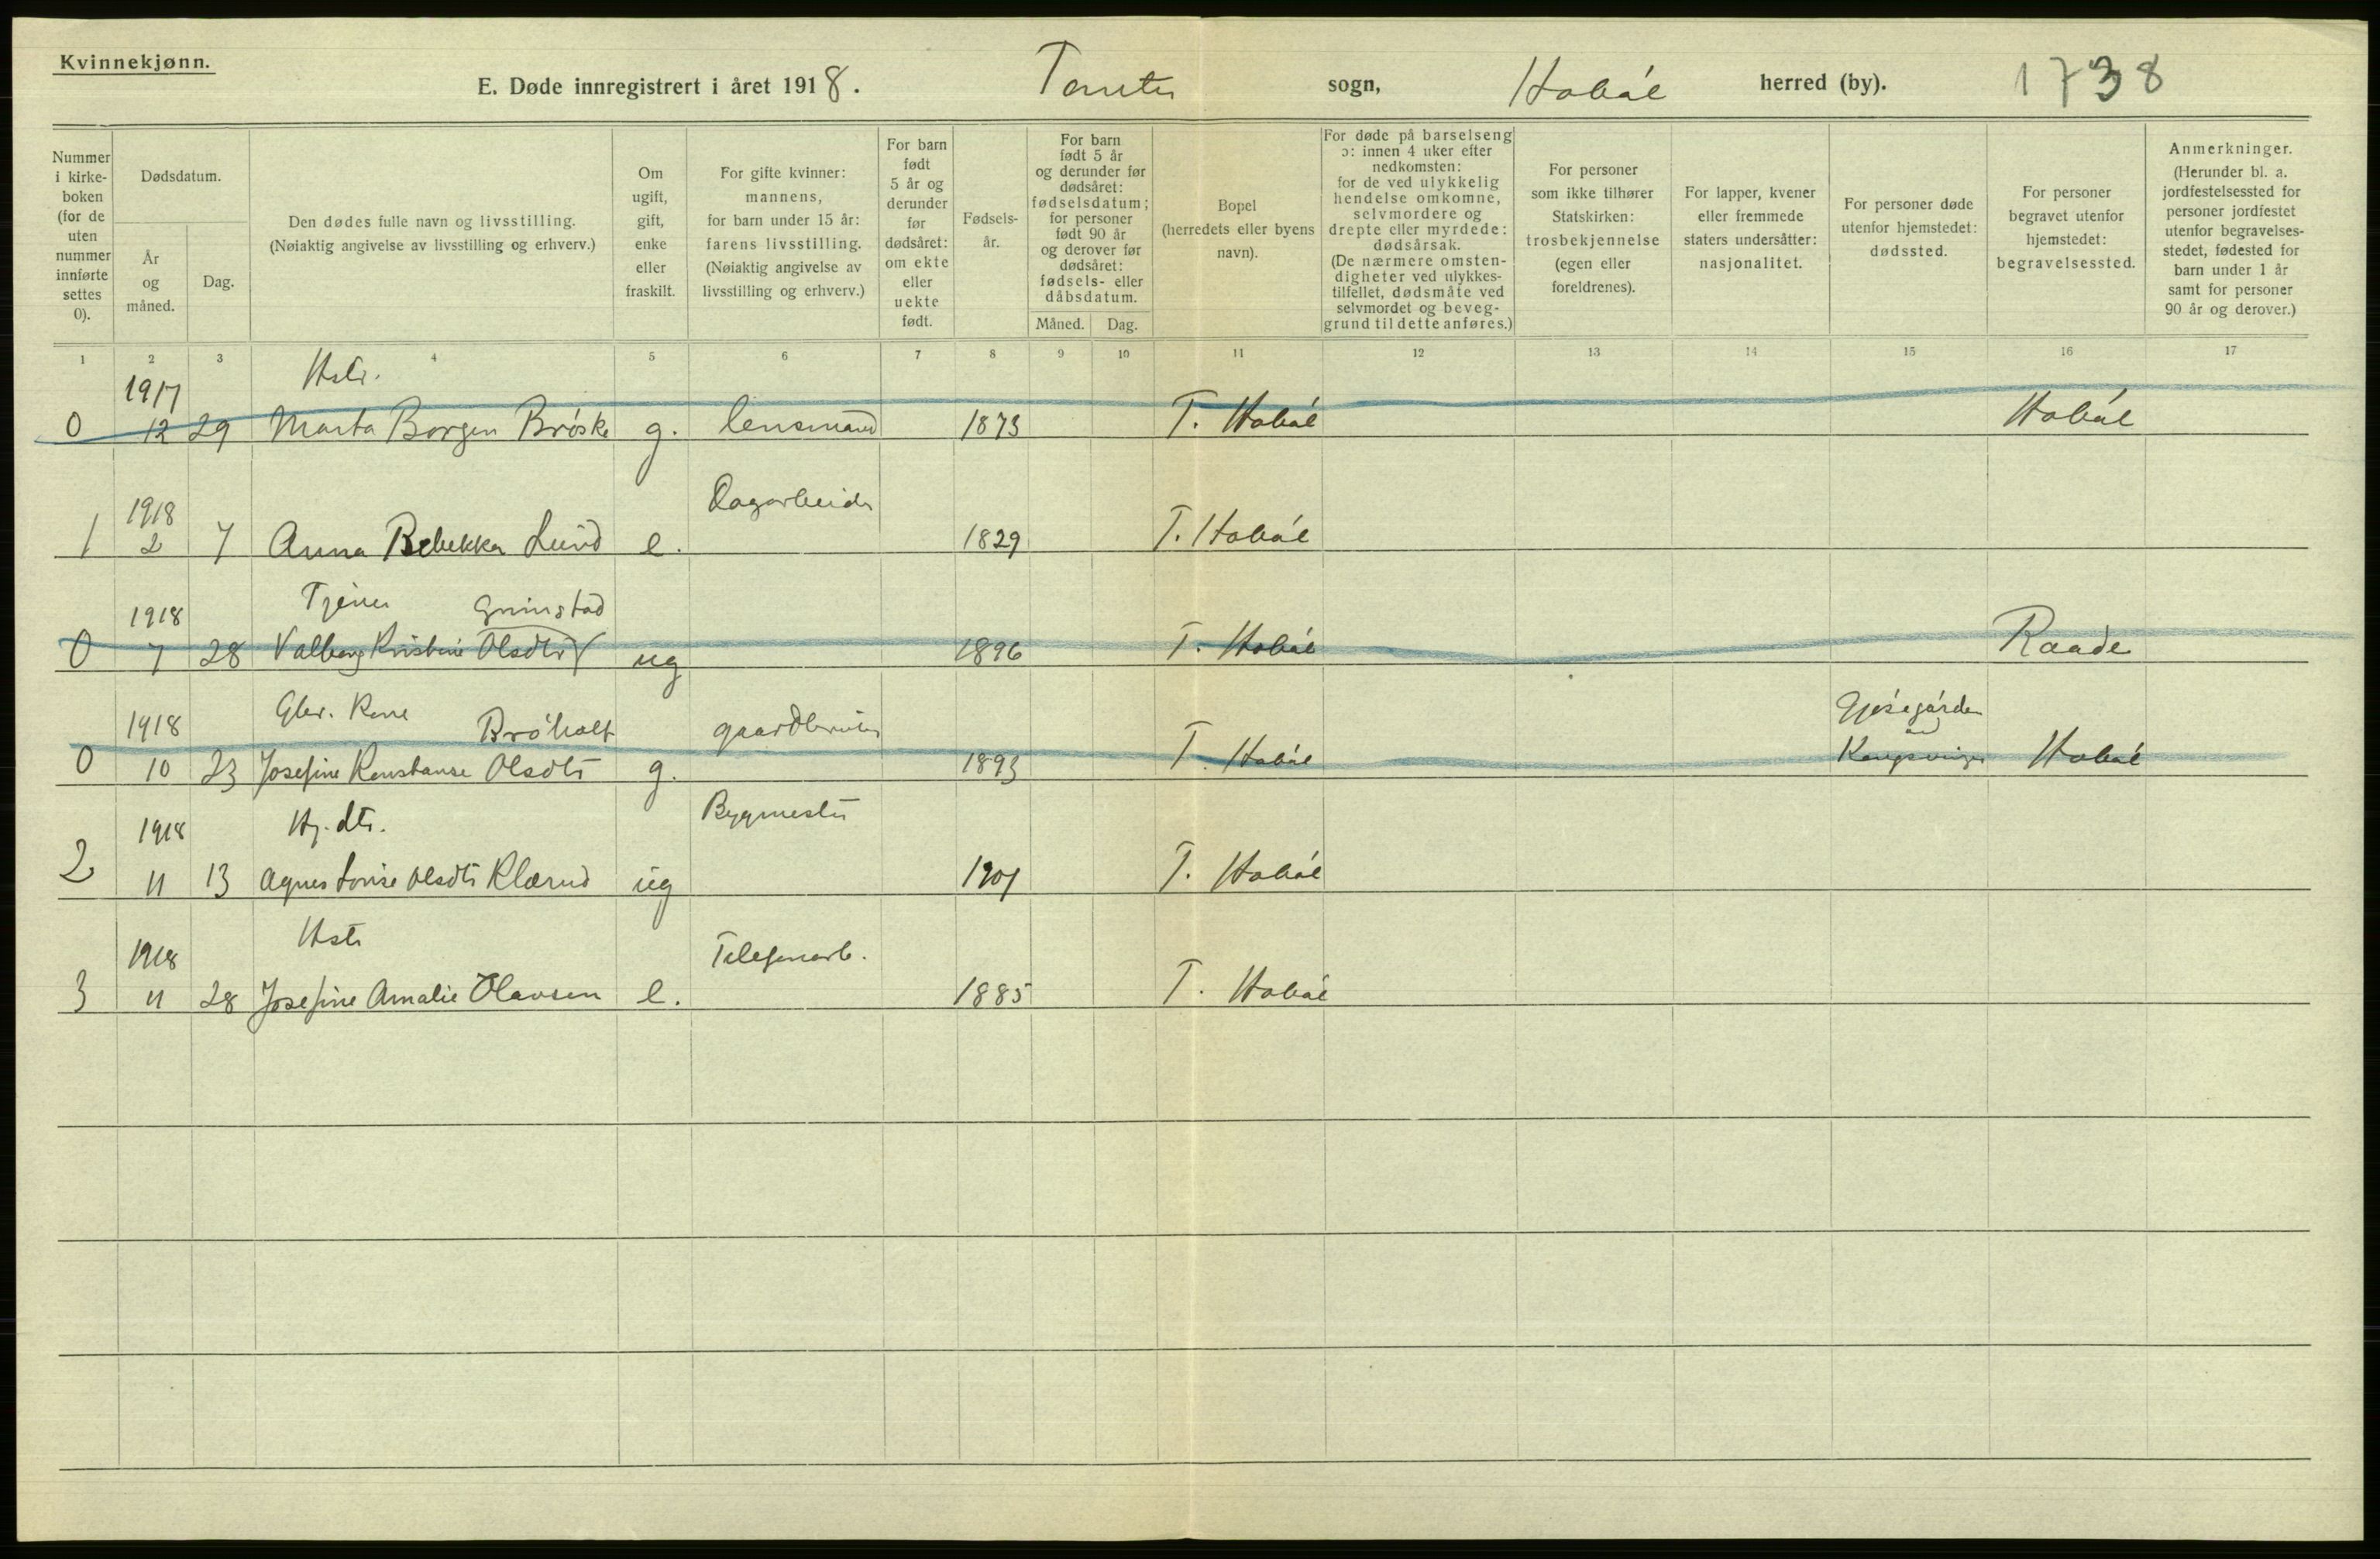 Kvinnekjønn.
E. Døde innregistrert i året 1918. Tomter sogn, Hobøl herred (by). 1738
Nummer i kirkeboken (for de uten nummer innførte settes 0).
Dødsdatum.
År og måned.
Dag.
Den dødes fulle navn og livsstilling. (Nøiaktig angivelse av livsstilling og erhverv.)
Om ugift, gift, enke eller fraskilt.
For gifte kvinner: mannens, for barn under 15 år: farens livsstilling. (Nøiaktig angivelse av livsstilling og erhverv.)
For barn født 5 år og derunder før dødsåret: om ekte eller uekte født.
Fødselsår.
For barn født 5 år og derunder før dødsåret: fødselsdatum; for personer født 90 år og derover før dødsåret: fødsels- eller dåbsdatum.
Måned. Dag.
Bopel (herredets eller byens navn).
For døde på barselseng ɔ: innen 4 uker efter nedkomsten: for de ved ulykkelig hendelse omkomne, selvmordere og drepte eller myrdede: dødsårsak. (De nærmere omstendigheter ved ulykkestilfellet, dødsmåte ved selvmordet og beveggrund til dette anføres.)
For personer som ikke tilhører Statskirken: trosbekjennelse (egen eller foreldrenes).
For lapper, kvener eller fremmede staters undersåtter: nasjonalitet.
For personer døde utenfor hjemstedet: dødssted.
For personer begravet utenfor hjemstedet: begravelsessted.
Anmerkninger. (Herunder bl. a. jordfestelsessted for personer jordfestet utenfor begravelsesstedet, fødested for barn under 1 år samt for personer 90 år og derover.)
1 2 3 4 5 6 7 8 9 10 11 12 13 14 15 16 17
1917
0 12 29 Marta Borgen Brøske g. lensmand 1873 T. Hobøl Hobøl
1918 Dagarbeider
1 2 7 Anna Rebekka Lund e. 1829 T. Hobøl
1918 Tjener Grimstad
0 7 28 Valborg Kristine Olsdtr ug 1896 T. Hobøl Raade
1918 Gbr. Kone Brøholt gaardbruker Gjøsegården
0 10 23 Josefine Konstanse Olsdtr g. 1893 T. Hobøl Kongsvinger Hobøl
1918 Hj. dtr. Bygmester
2 11 13 Agnes Lovise Olsdtr Klærud ug 1901 T. Hobøl
1918 Hstr Telefonarb.
3 11 28 Josefine Amalie Olavsen e. 1885 T. Hobøl